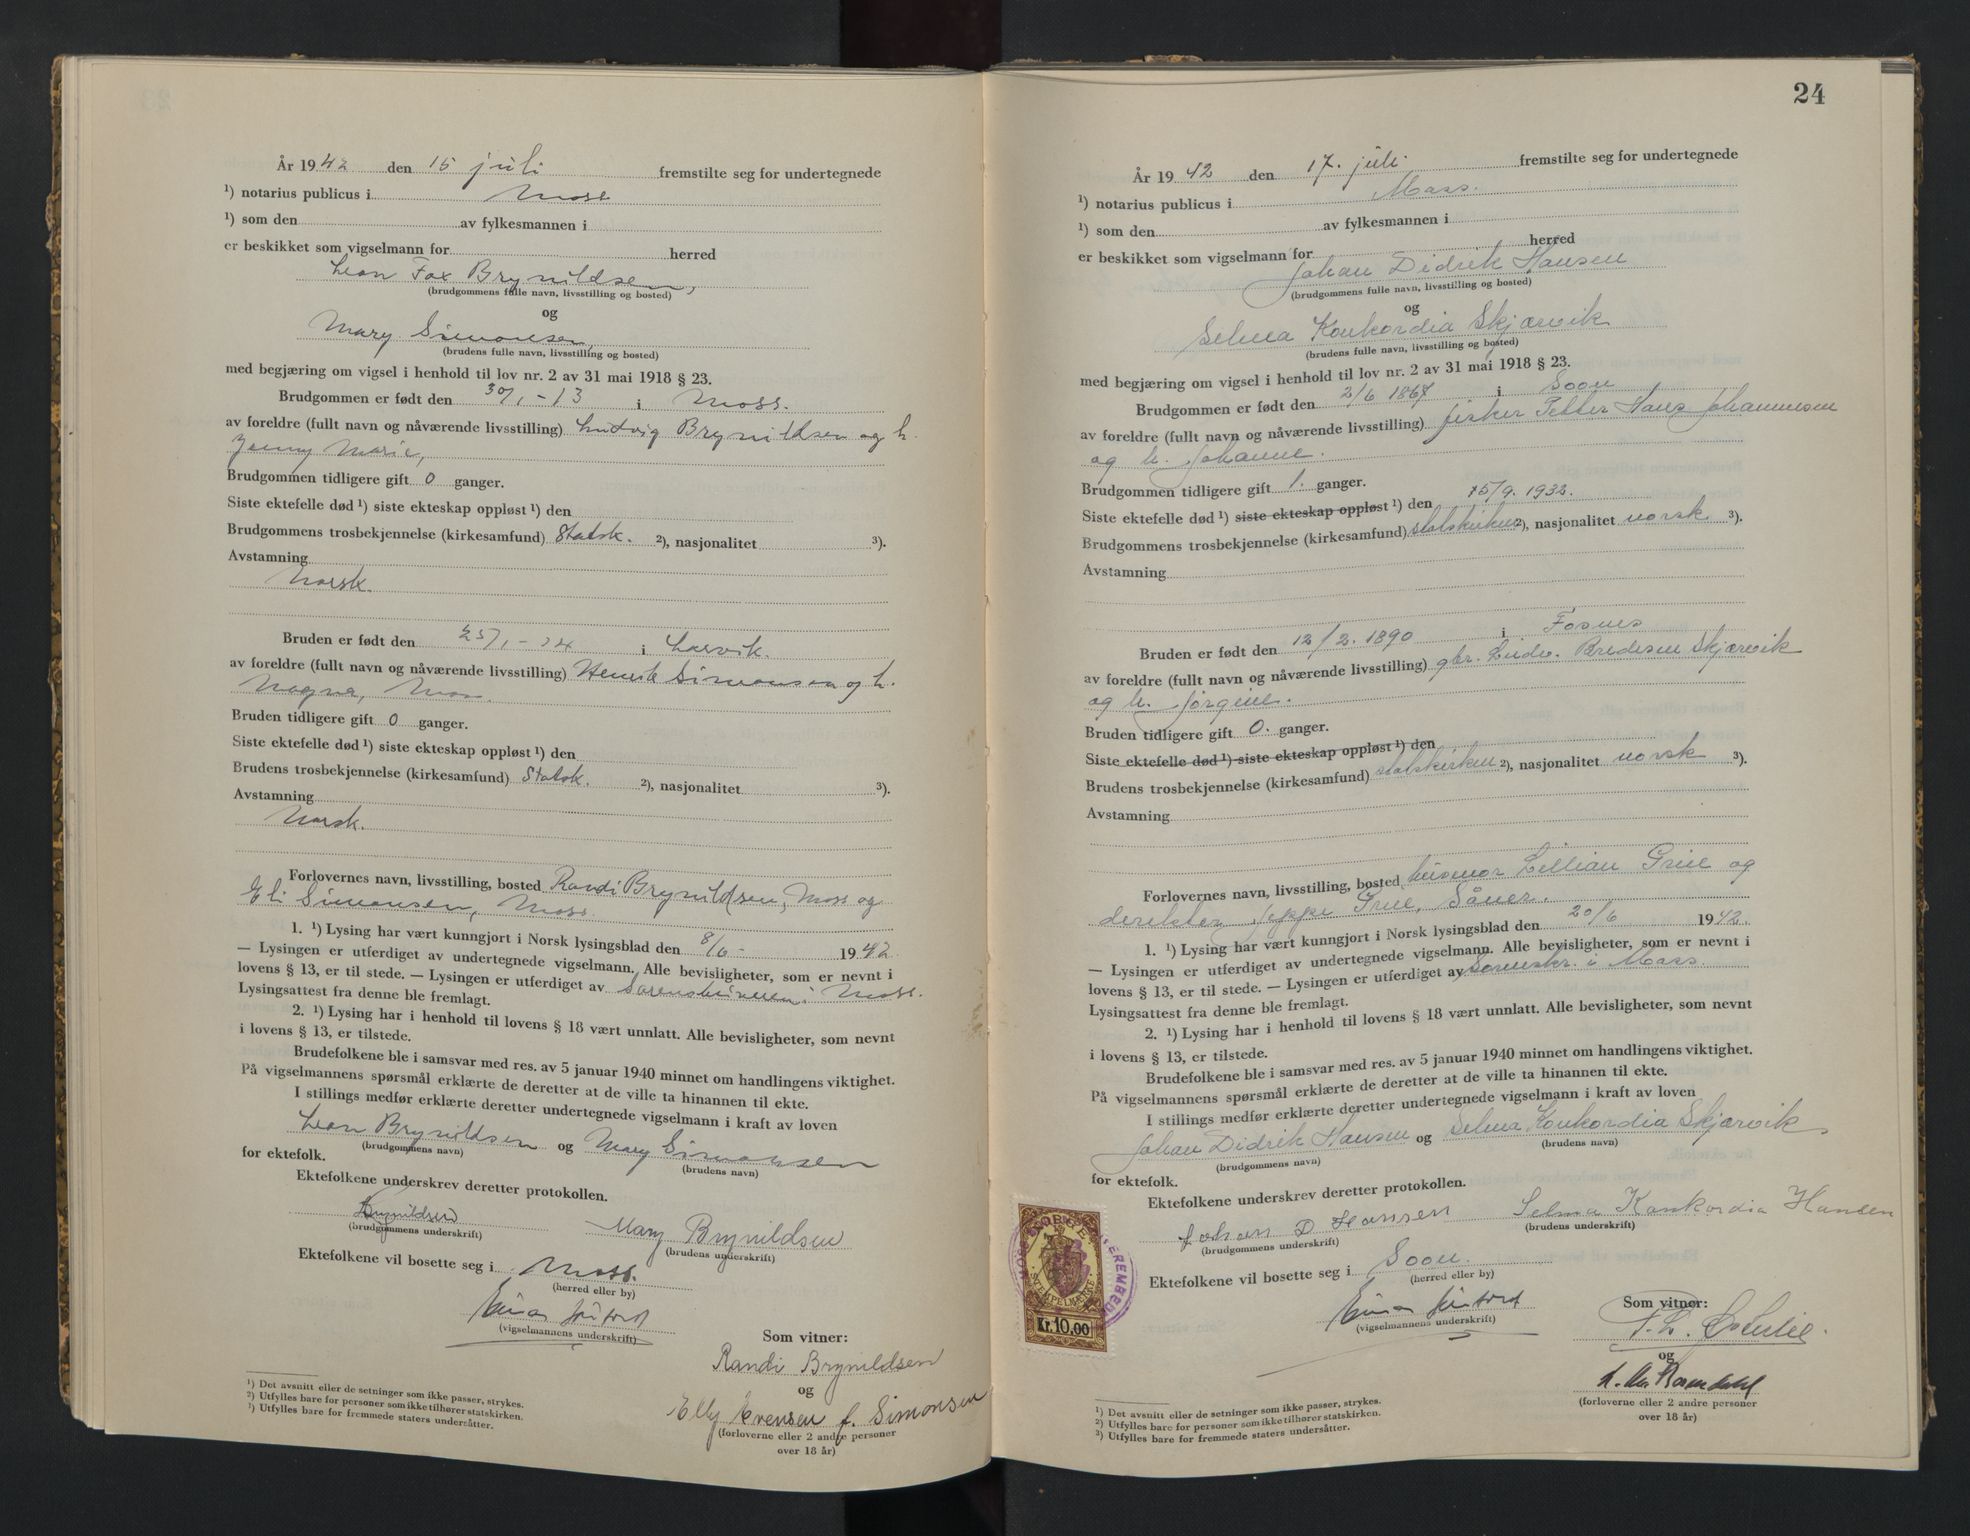 År 1942 den 15 juli fremstilte seg for undertegnede
¹) notarius publicus i Moss
¹) som den av fylkesmannen i
er beskikket som vigselmann for herred
Leon Fox Brynildsen,
(brudgommens fulle navn, livsstilling og bosted)
og
Mary Simonsen,
(brudens fulle navn, livsstilling og bosted)
med begjæring om vigsel i henhold til lov nr. 2 av 31 mai 1918 § 23.
Brudgommen er født den 30/1-13 i Moss.
av foreldre (fullt navn og nåværende livsstilling) Ludvig Brynildsen og h.
Jenny Marie,
Brudgommen tidligere gift 0 ganger.
Siste ektefelle død ¹) siste ekteskap oppløst ¹) den
Brudgommens trosbekjennelse (kirkesamfund) Statsk. ²), nasjonalitet ³).
Avstamning
Norsk.
Bruden er født den 25/1-24 i Larvik.
av foreldre (fullt navn og nåværende livsstilling) Henrik Simonsen og h.
Magna, Moss.
Bruden tidligere gift 0 ganger.
Siste ektefelle død ¹) siste ekteskap oppløst ¹) den
Brudens trosbekjennelse (kirkesamfund) Statsk. ²), nasjonalitet ³).
Avstamning
Norsk.
Forlovernes navn, livsstilling, bosted Randi Brynildsen, Moss og
Eli Simonsen, Moss.
1. ¹) Lysing har vært kunngjort i Norsk lysingsblad den 8/6- 1942
— Lysingen er utferdiget av undertegnede vigselmann. Alle bevisligheter, som er nevnt i
lovens § 13, er til stede. — Lysingen er utferdiget av Sorenskriveren i Moss.
Lysingsattest fra denne ble fremlagt.
2. ¹) Lysing har i henhold til lovens § 18 vært unnlatt. Alle bevisligheter, som nevnt
i lovens § 13, er tilstede.
Brudefolkene ble i samsvar med res. av 5 januar 1940 minnet om handlingens viktighet.
På vigselmannens spørsmål erklærte de deretter at de ville ta hinannen til ekte.
I stillings medfør erklærte deretter undertegnede vigselmann i kraft av loven
Leon Brynildsen og Mary Simonsen
(brudgommens navn) (brudens navn)
for ektefolk.
Ektefolkene underskrev deretter protokollen.
Brynildsen Mary Brynildsen
(brudgommens underskrift) (brudens underskrift)
Ektefolkene vil bosette seg i Moss.
(herred eller by)
(vigselmannens underskrift)
Som vitner:
Randi Brynildsen
og
Elly Evensen f. Simonsen
(forloverne eller 2 andre personer
over 18 år)
¹) Det avsnitt eller de setninger som ikke passer, strykes.
²) Utfylles bare for personer som ikke tilhører statskirken.
³) Utfylles bare for fremmede staters undersåtter.
24
År 1942 den 17. juli. fremstilte seg for undertegnede
¹) notarius publicus i Moss.
¹) som den av fylkesmannen i
er beskikket som vigselmann for herred
Johan Didrik Hansen
(brudgommens fulle navn, livsstilling og bosted)
og
Selma Konkordia Skjærvik
(brudens fulle navn, livsstilling og bosted)
med begjæring om vigsel i henhold til lov nr. 2 av 31 mai 1918 § 23.
Brudgommen er født den 2/6 1867 i Soon
av foreldre (fullt navn og nåværende livsstilling) fisker Petter Hans Johannesen
og h. Johanne.
Brudgommen tidligere gift 1. ganger.
Siste ektefelle død ¹) siste ekteskap oppløst ¹) den 15/9. 1932.
Brudgommens trosbekjennelse (kirkesamfund) statskirken ²), nasjonalitet norsk ³).
Avstamning
Bruden er født den 12/2. 1890 i Fosnes
av foreldre (fullt navn og nåværende livsstilling) gbr. Ludv. Bredesen Skjærvik
og h. Jørgine.
Bruden tidligere gift 0. ganger.
Siste ektefelle død ¹) siste ekteskap oppløst ¹) den
Brudens trosbekjennelse (kirkesamfund) statskirken ²), nasjonalitet norsk ³).
Avstamning
Forlovernes navn, livsstilling, bosted husmor Lillian Grue og
direktør Jeppe Grue, Såner.
1. ¹) Lysing har vært kunngjort i Norsk lysingsblad den 20/6 1942.
— Lysingen er utferdiget av undertegnede vigselmann. Alle bevisligheter, som er nevnt i
lovens § 13, er til stede. — Lysingen er utferdiget av Sorenskr. i Moss.
Lysingsattest fra denne ble fremlagt.
2. ¹) Lysing har i henhold til lovens § 18 vært unnlatt. Alle bevisligheter, som nevnt
i lovens § 13, er tilstede.
Brudefolkene ble i samsvar med res. av 5 januar 1940 minnet om handlingens viktighet.
På vigselmannens spørsmål erklærte de deretter at de ville ta hinannen til ekte.
I stillings medfør erklærte deretter undertegnede vigselmann i kraft av loven
Johan Didrik Hansen og Selma Konkordia Skjærvik
(brudgommens navn) (brudens navn)
for ektefolk.
Ektefolkene underskrev deretter protokollen.
Johan D. Hansen Selma Konkordia Hansen
(brudgommens underskrift) (brudens underskrift)
Ektefolkene vil bosette seg i Soon.
(herred eller by)
(vigselmannens underskrift)
STEMPELMERKE
Kr. 10.00
Som vitner:
og
(forloverne eller 2 andre personer
over 18 år)
¹) Det avsnitt eller de setninger som ikke passer, strykes.
²) Utfylles bare for personer som ikke tilhører statskirken.
³) Utfylles bare for fremmede staters undersåtter.